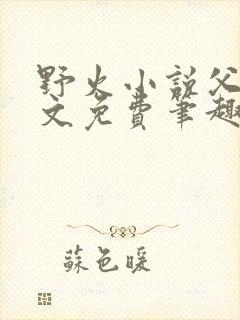 野火小说父
文免费笔趣
苏色暖